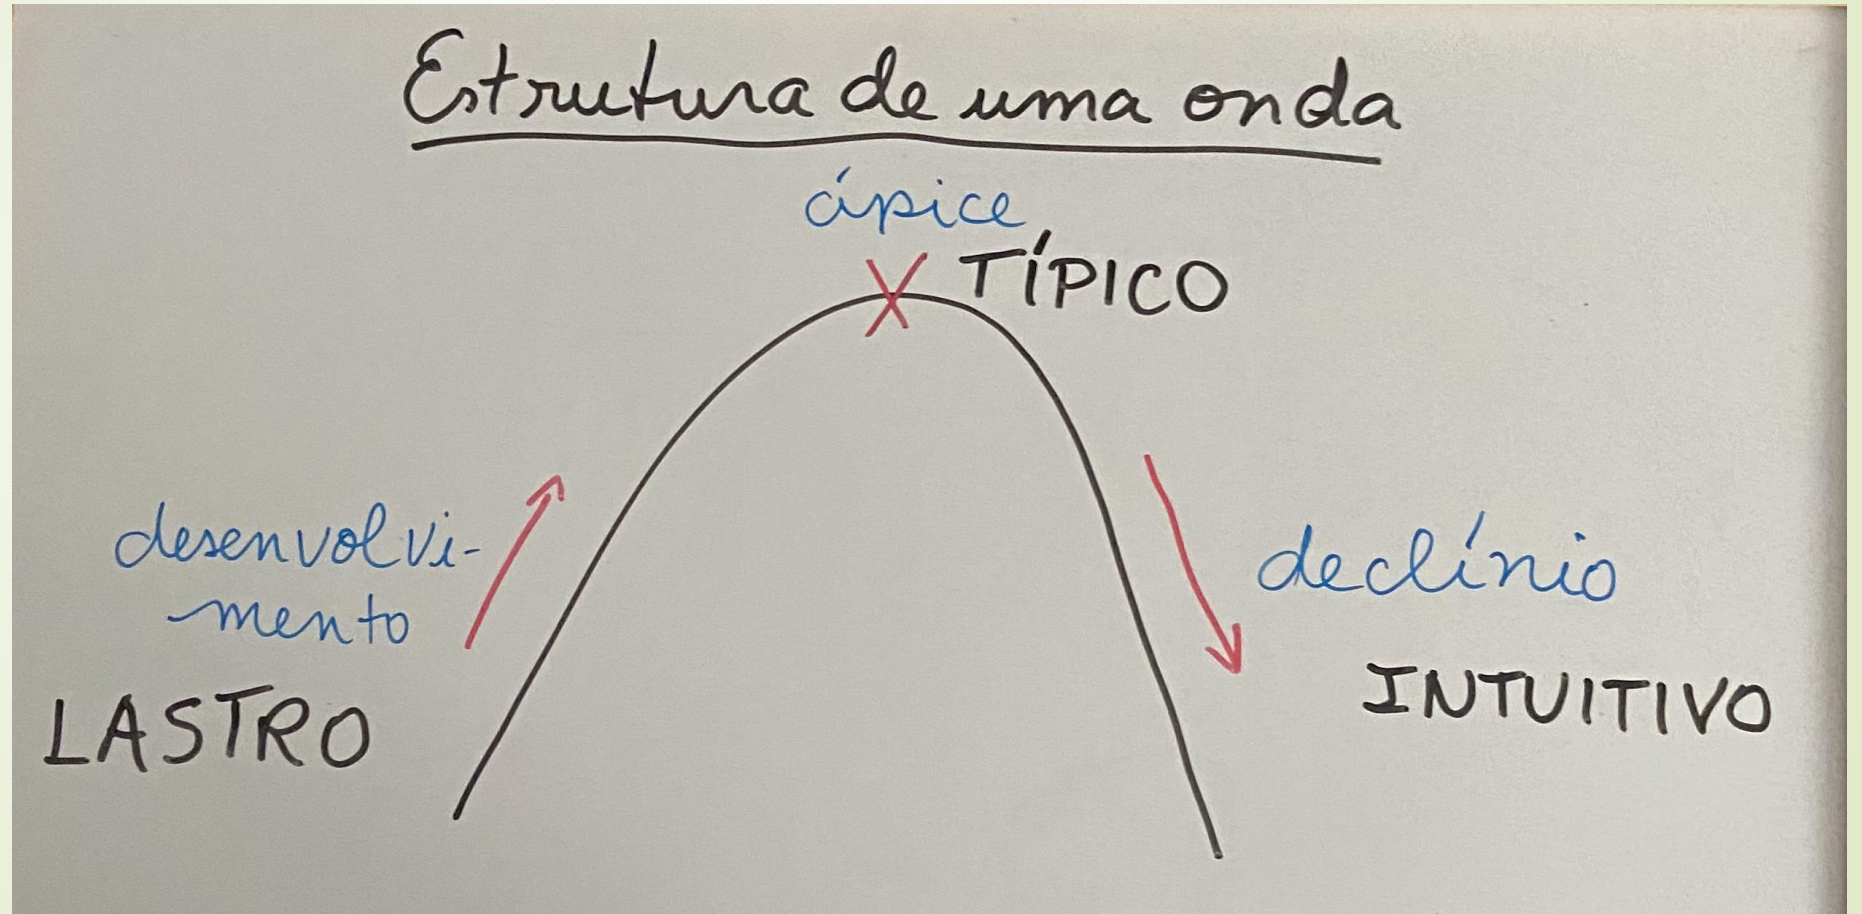 Estrutura de uma onda
ápice
TÍPICO
desenvolvi-
mento
declínio
LASTRO
INTUITIVO